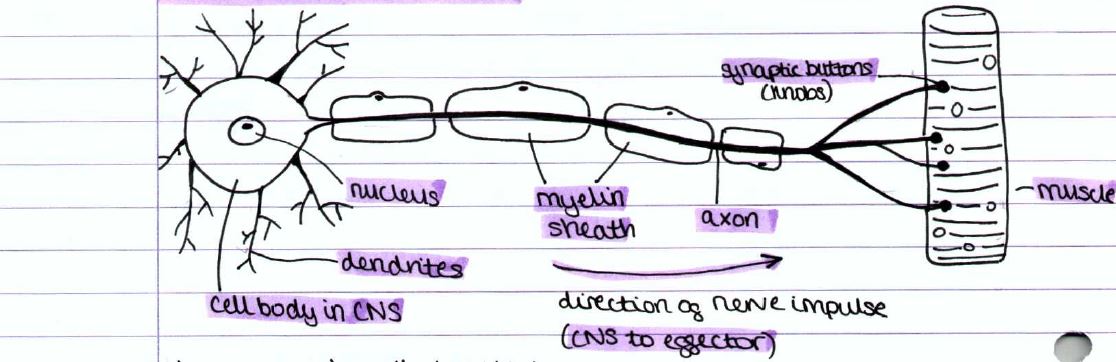 synaptic buttons
(knobs)
nucleus
myelin
sheath
axon
muscle
dendrites
cell body in CNS
direction of nerve impulse
(CNS to effector)